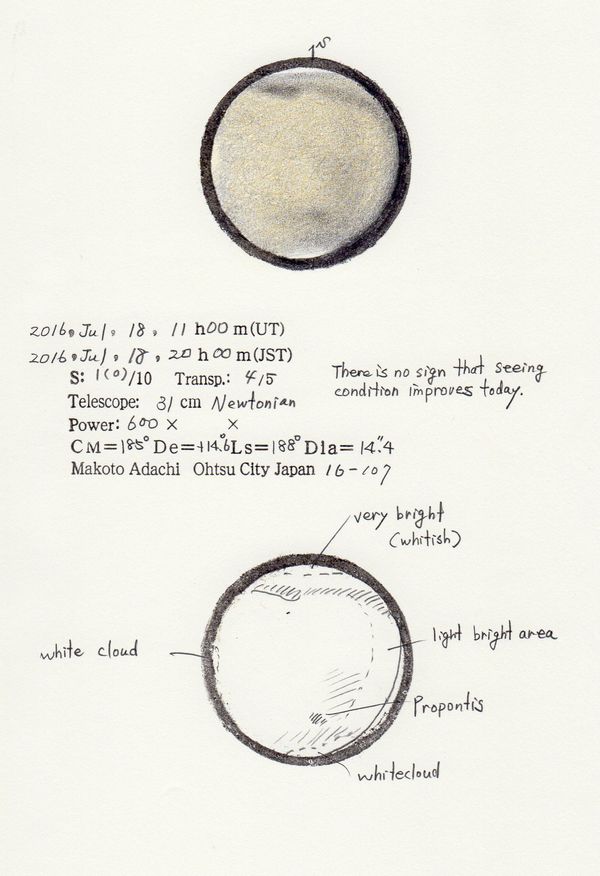 S
2016, Jul, 18, 11 h 00 m (UT)
2016, Jul, 18, 20 h 00 m (JST)
S: 1(0)/10 Transp.: 4/5
There is no sign that seeing
condition improves today.
Telescope: 31 cm Newtonian
Power: 600 × ×
CM=185° De=+14.6° Ls=188° Dia= 14".4
Makoto Adachi Ohtsu City Japan 16-107
very bright
(whitish)
light bright area
white cloud
Propontis
whitecloud